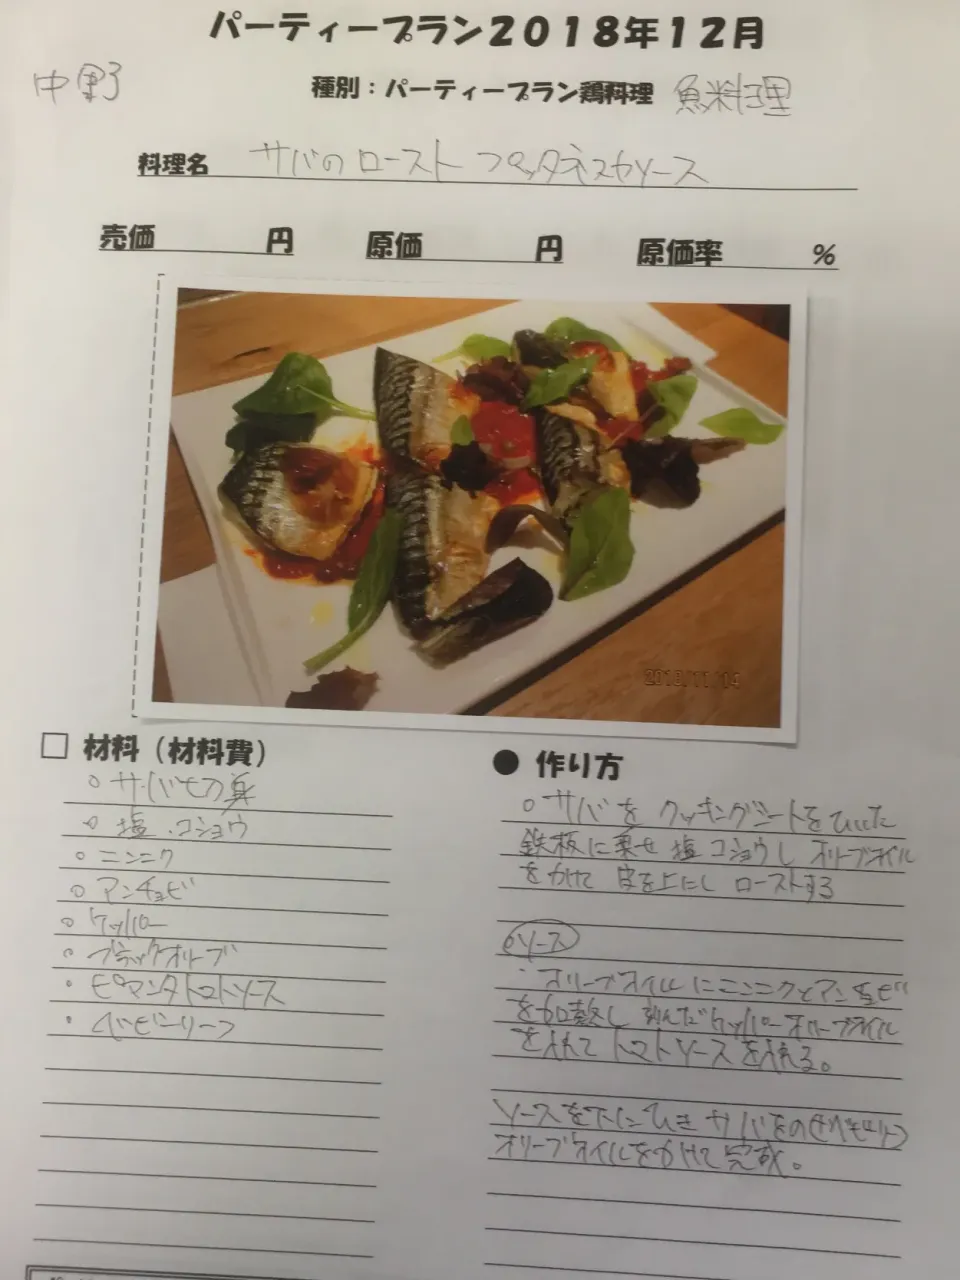 パーティープラン2018年12月
中野
種別：パーティープラン鶏料理 魚料理
料理名 サバのロースト プッタネスカソース
売価 円 原価 円 原価率 %
2018/11/14
□ 材料（材料費）
○ サバ切り身
○ 塩.コショウ
○ ニンニク
○ アンチョビ
○ ケッパー
○ ブラックオリーブ
・ ピマンタトマトソース
・ ベビーリーフ
● 作り方
○ サバを クッキングシートをひいた
鉄板に乗せ 塩コショウし オリーブオイル
をかけて 皮を上にし ローストする
○ソース
・オリーブオイルにニンニクとアンチョビ
を加熱し 刻んだケッパー オリーブオイル
を入れて トマトソースを入れる。
ソースを下にひき サバをのせベビーリーフ
オリーブオイルをかけて 完成。